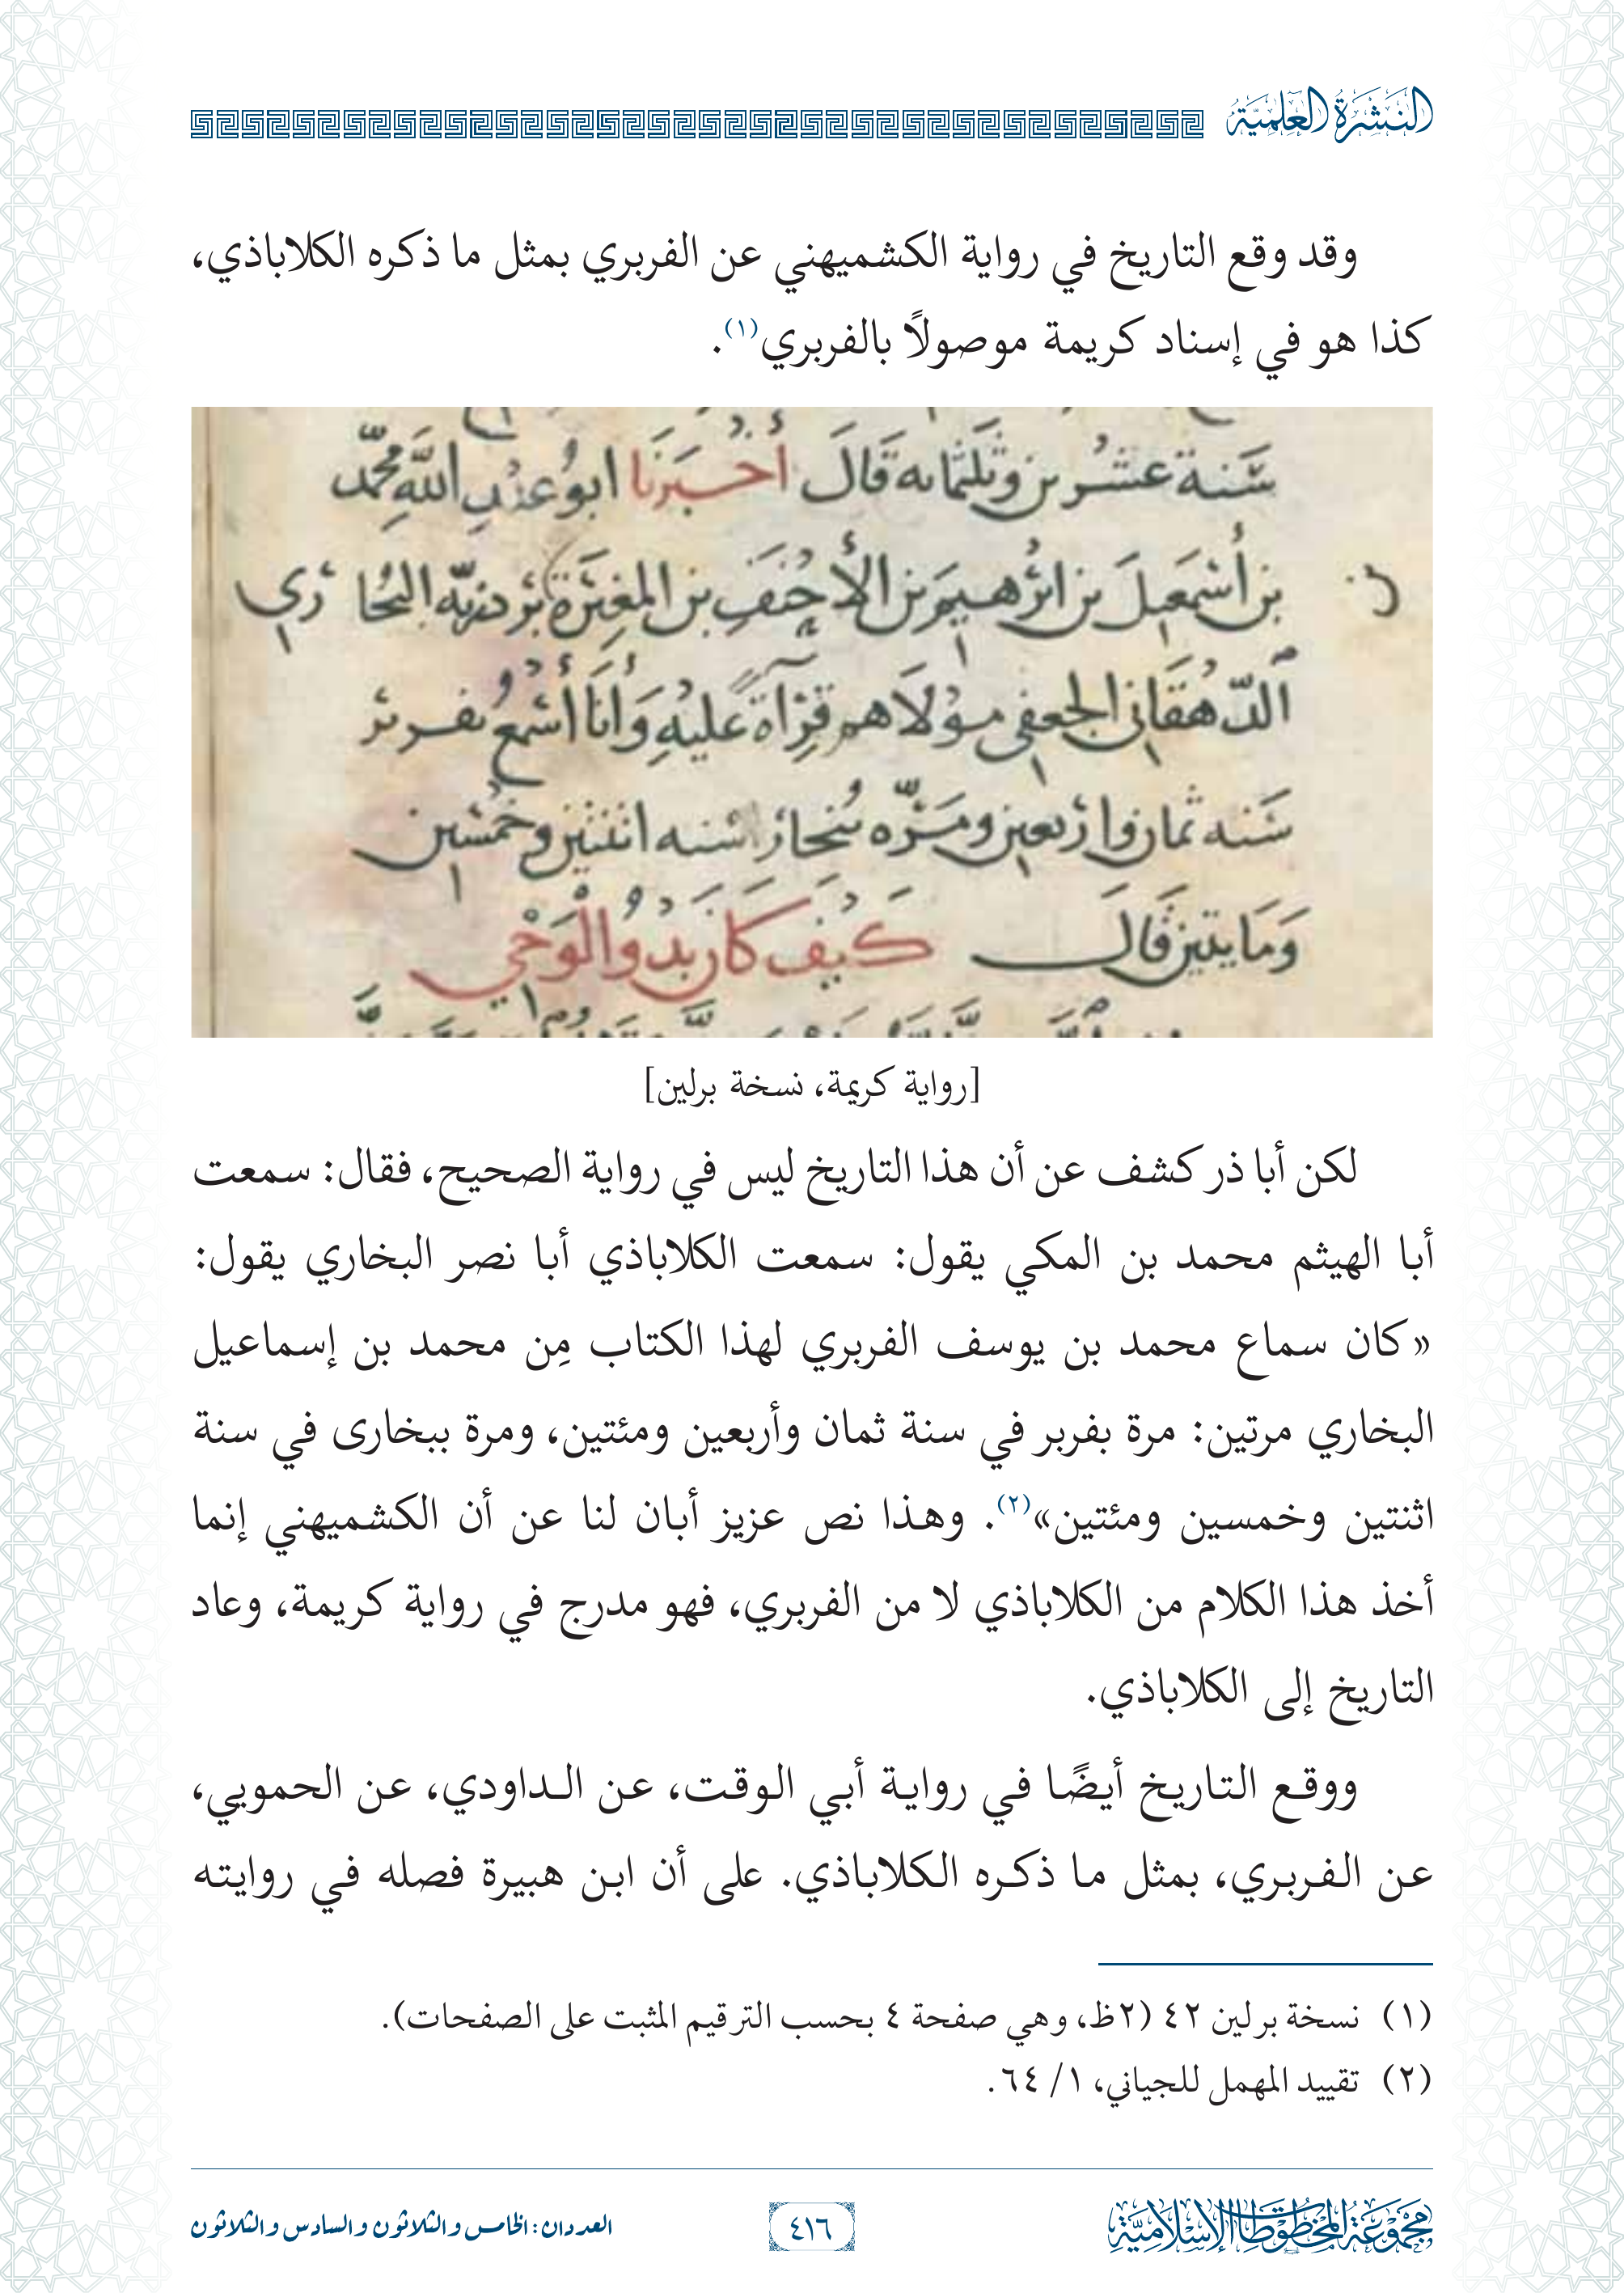 النشرة العلمية
وقد وقع التاريخ في رواية الكشميهني عن الفربري بمثل ما ذكره الكلاباذي،
كذا هو في إسناد كريمة موصولاً بالفربري(١).
سَنة عشرين وثلثمائه قَالَ أخْبَرَنا ابو عبد الله محمّد
بن أسمعيلَ بن ابرهيم بن الأحنف بن المغيرة بن بردزبّه البخاري
الدّهقاني الجعفي مولاهم قرآةً عليه وَأنَا أسْمع بفربر
سَنه ثمان واربعين ومَرّه ببخارا سنه اثنتين وخمسين
وَمايتين قال كيف كان بدو الوحي
[رواية كريمة، نسخة برلين]
لكن أبا ذر كشف عن أن هذا التاريخ ليس في رواية الصحيح، فقال: سمعت
أبا الهيثم محمد بن المكي يقول: سمعت الكلاباذي أبا نصر البخاري يقول:
«كان سماع محمد بن يوسف الفربري لهذا الكتاب مِن محمد بن إسماعيل
البخاري مرتين: مرة بفربر في سنة ثمان وأربعين ومئتين، ومرة ببخارى في سنة
اثنتين وخمسين ومئتين»(٢). وهذا نص عزيز أبان لنا عن أن الكشميهني إنما
أخذ هذا الكلام من الكلاباذي لا من الفربري، فهو مدرج في رواية كريمة، وعاد
التاريخ إلى الكلاباذي.
ووقع التاريخ أيضًا في رواية أبي الوقت، عن الداودي، عن الحمويي،
عن الفربري، بمثل ما ذكره الكلاباذي. على أن ابن هبيرة فصله في روايته
(١) نسخة برلين ٤٢ (٢ظ، وهي صفحة ٤ بحسب الترقيم المثبت على الصفحات).
(٢) تقييد المهمل للجياني، ١/ ٦٤.
مجموعة المخطوطات الإسلامية
٤١٦
العددان: الخامس والثلاثون والسادس والثلاثون